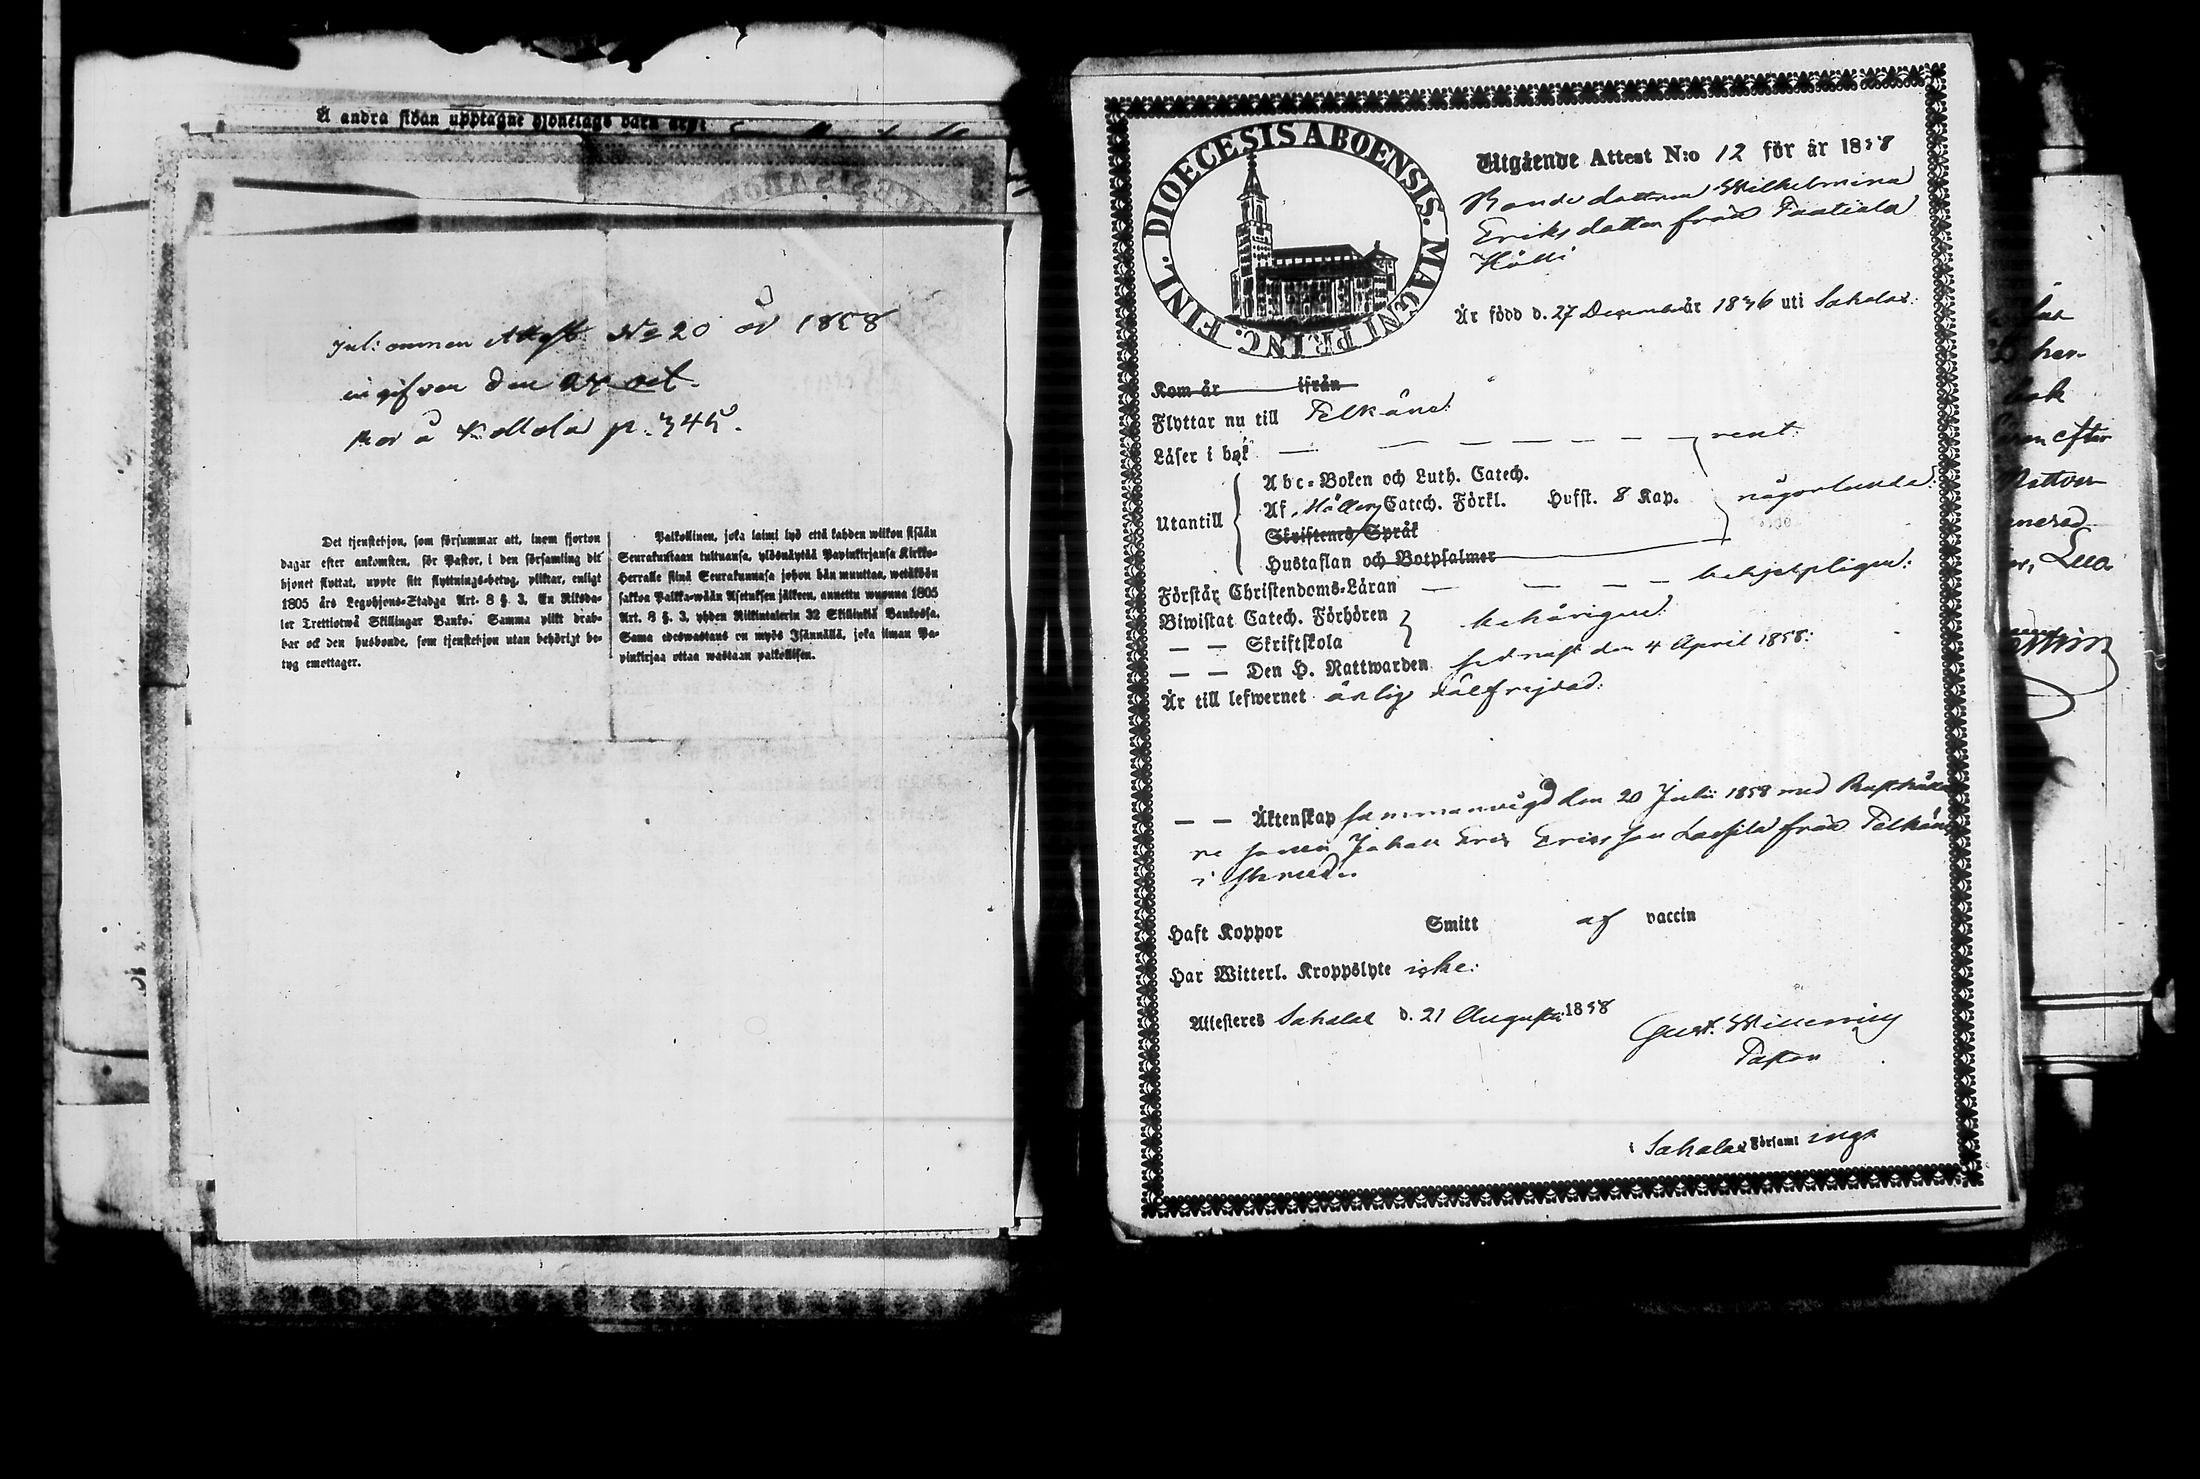 Å andra sidan upptagne hjonelags barn äro:
Inkommen Attest No 20 år 1858
ingifven den
bor å p. 345.
Det tjenstehjon, som försummar att, inom fjorton
dagar efter ankomsten, för Pastor, i den församling dit
hjonet flyttat, uppte sitt flyttnings-betyg, pliktar, enligt
1805 års Legohjons-Stadga Art. 8 §. 3, En Riksda-
ler Trettiotwå Skillingar Banko. Samma plikt drab-
bar ock den husbonde, som tjenstehjon utan behörigt be-
tyg emottager.
Palkollinen, joka laimi lyö että kahden wiikon sisään
Seurakuntaan tultuansa, ylösnäyttää Papinkirjansa Kirkko-
Herralle siinä Seurakunnasa johon hän muuttaa, wetäköön
sakkoa Palkka-wään Asetuksen jälkeen, annettu wuonna 1805
Art. 8 §. 3, yhden Riikintalerin 32 Skillinkiä Bankossa.
Sama edeswastaus on myös Isännällä, joka ilman Pa-
pinkirjaa ottaa wastaan palkollisen.
DIOECESIS ABOENSIS. MAGNI PRINC. FINL.
Utgående Attest N:o 12 för år 1858
Bonde dottren Wilhelmina
Eriksdotter från Taatiala
Hölli
Är född d. 27 December år 1836 uti Sahalax.
Kom år ifrån
Flyttar nu till Pelkäne
Läser i bok — — — — — — rent.
Utantill
Abc-Boken och Luth. Catech.
Af Möllers Catech. Förkl. Hufst. 8 Kap. någorlunda
Skriftenes Språk
Hustaflan och Botpsalmer
Förstår Christendoms-Läran — — — — behjelpligen:
Biwistat Catech. Förhören
— — Skriftskola behörigen
— — Den H. Nattwarden sednast den 4 April 1858:
Är till lefwernet ärlig välfrejdad:
— — Äktenskap sammanvigd den 20 Julii 1858 med Rusthålla
re sonen Johan Eric Ericsson från Pelkäne
i
Haft Koppor Smitt af vaccin
Har Witterl. Kroppslyte icke:
Attesteres Sahalax d. 21 Augusti 1858
Gust. Willenius
Pastor
i Sahalax Församl ingr